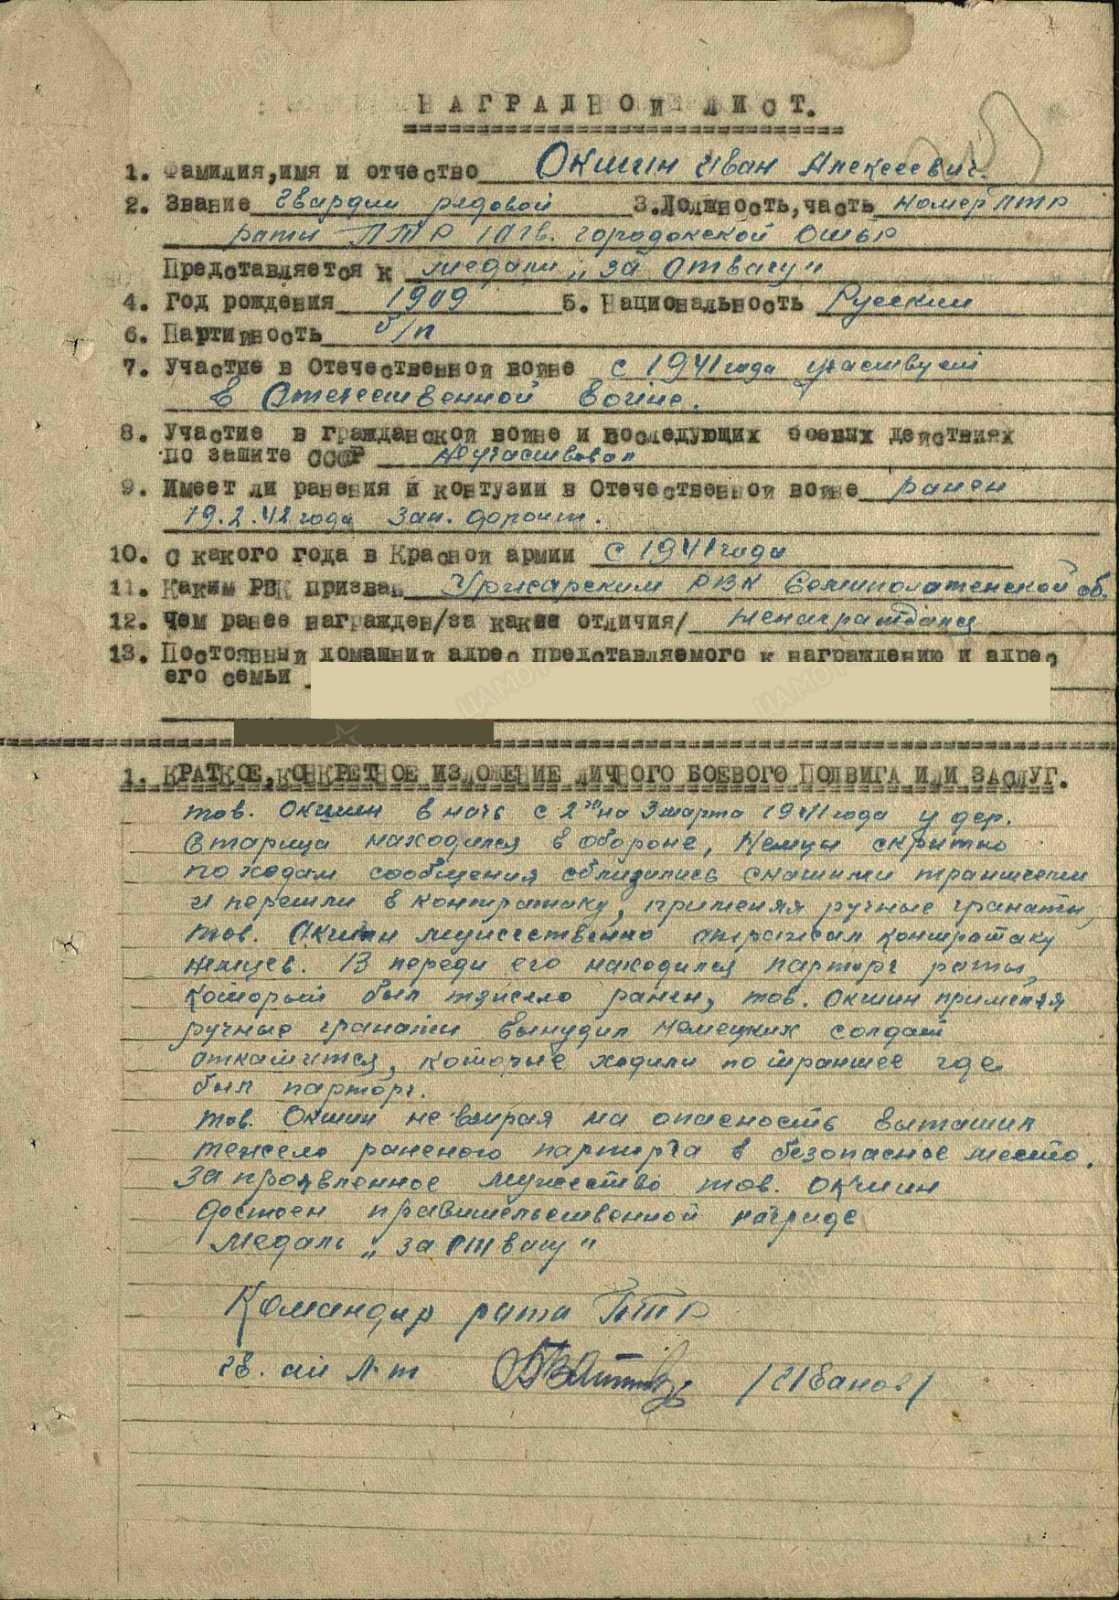 НАГРАДНОЙ ЛИСТ.
1. Фамилия,имя и отчество Окшин Иван Алексеевич.
2. Звание гвардии рядовой 3.Должность,часть номер ПТР
роты ПТР 1 гв. городокской ОШБР
Представляется к медали „за отвагу"
4. Год рождения 1909 5. Национальность Русский
6. Партийность б/п
7. Участие в Отечественной войне с 1941 года участвует
в Отечественной войне.
8. Участие в гражданской войне и последующих боевых действиях
по защите СССР не участвовал
9. Имеет ли ранения и контузии в Отечественной войне ранен
19.2.42 года Зап. фронт.
10. С какого года в Красной армии с 1941 года
11. Каким РВК призван Урджарским РВК Семиполатенской об.
12. Чем ранее награжден/за какие отличия/ ненагражданц
13. Постоянный домашний адрес представляемого к награждению и адрес
его семьи
1. КРАТКОЕ,КОНКРЕТНОЕ ИЗЛОЖЕНИЕ ЛИЧНОГО БОЕВОГО ПОДВИГА ИЛИ ЗАСЛУГ.
тов. Окшин в ночь с 2го на 3 марта 1941 года у дер.
Старица находился в обороне, Немцы скрытно
по ходам сообщения сблизились снашими траншеями
и перешли в контратаку, применяя ручные гранаты,
тов. Окшин мужественно отражал контратаку
немцев. В переди его находился парторг роты,
который был тяжело ранен, тов. Окшин применяя
ручные гранаты вынудил немецких солдат
откатится, которые ходили по траншее где
был парторг.
тов. Окшин не взирая на опасность вытащил
тежело раненого парторга в безопасное место.
За проявленное мужество тов. Окшин
достоен правительственной награде
медаль „за отвагу"
Командир роты ПТР
гв. Л-т /Иванов/